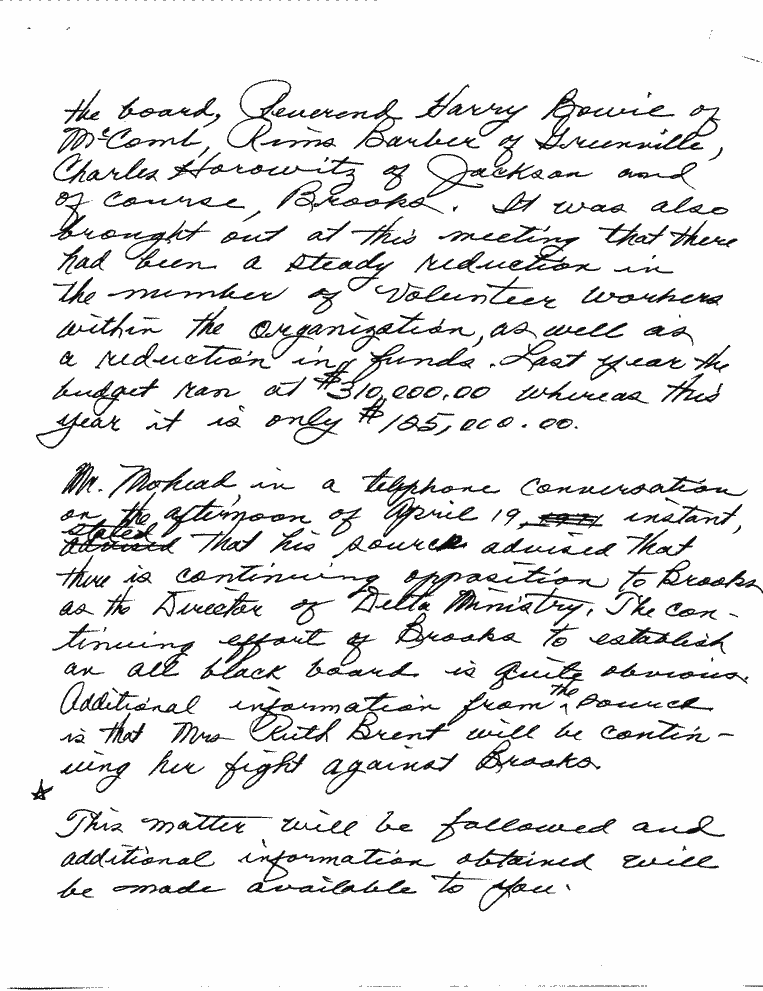 the board, Reverend Harry Bowie of
McComb, Rims Barber of Greenville,
Charles Horowitz of Jackson and
of course, Brooks. It was also
brought out at this meeting that there
had been a steady reduction in
the number of Volunteer workers
within the organization, as well as
a reduction in funds. Last year the
budget ran at $310,000.00 whereas this
year it is only $125,000.00.
Mr. Mohead, in a telephone conversation
on the afternoon of April 19, 1971 instant,
stated
advised that his source advised that
there is continuing opposition to Brooks
as the Director of Delta Ministry. The con-
tinuing effort of Brooks to establish
an all black board is quite obvious.
Additional information from the source
is that Mrs Ruth Brent will be contin-
uing her fight against Brooks.
This matter will be followed and
additional information obtained will
be made available to you.